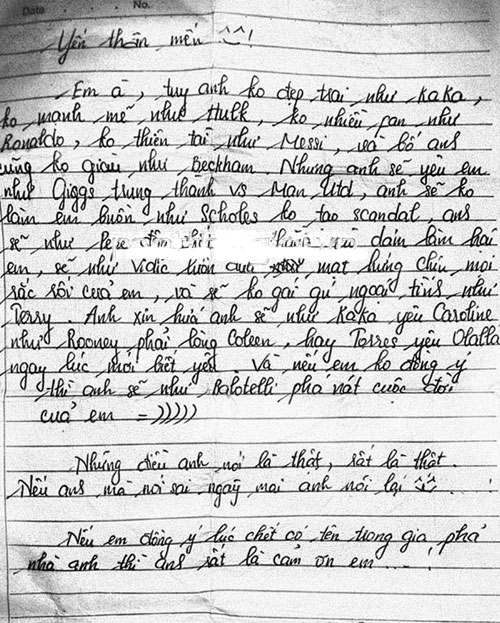 Date No.
Yến thân mến ^^!
Em à, tuy anh ko đẹp trai như KaKa,
ko mạnh mẽ như Hulk, ko nhiều fan như
Ronaldo, ko thiên tài như Messi, và bố anh
cũng ko giàu như Beckham. Nhưng anh sẽ yêu em
như Giggs trung thành vs Man Utd, anh sẽ ko
làm em buồn như Scholes ko tạo scandal, anh
sẽ như Pepe đốn chết dám làm hại
em, sẽ như Vidic luôn mạt hứng chịu mọi
sắc sôi của em, và sẽ ko gái gú ngoại tình như
Terry. Anh xin hứa anh sẽ như KaKa yêu Caroline
như Rooney phải lòng Coleen, hay Torres yêu Olalla
ngay lúc mới biết yêu. Và nếu em ko đồng ý
thì anh sẽ như Balotelli phá nát cuộc đời
của em =)))))
Những điều anh nói là thật, rất là thật.
Nếu anh mà nói sai ngày mai anh nói lại ^^
Nếu em đồng ý lúc chết có tên trong gia phả
nhà anh thì anh rất là cảm ơn em ....!